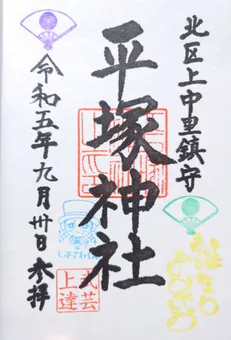 北区上中里鎮守
平塚神社
令和五年九月卅日参拝
武芸
上達